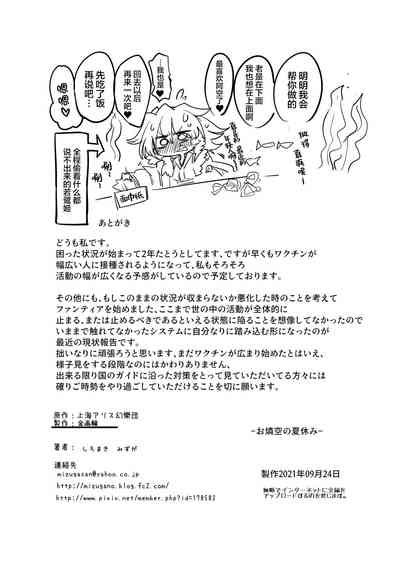 明明我会
帮你做的
老是在下面
我也想在上面啊
最喜欢阿空了♥
…我也是♥
回去以后
再来一次吧♥
先吃了饭
再说吧…
嗯嗯♥
全程偷看什么都
说不出来的若鹭姬
面巾纸
あとがき
どうも私です。
困った状況が始まって2年たとうとしてます、ですが早くもワクチンが
幅広い人に接種されるようになって、私もそろそろ
活動の幅が広くなる予感がしているので予定しております。
その他にも、もしこのままの状況が収まらないか悪化した時のことを考えて
ファンティアを始めました、ここまで世の中の活動が全体的に
止まる、または止めるべきであるといえる状態に陥ることを想像してなかったので
いままで触れてなかったシステムに自分なりに踏み込む形になったのが
最近の現状報告です。
拙いなりに頑張ろうと思います、まだワクチンが広まり始めたとはいえ、
様子見をする段階なのにはかわりありません、
出来る限り国のガイドに沿った対策をとって見ていただいてる方々には
確りご時勢をやり過ごしていただけることを切に願います。
原作：上海アリス幻樂団
製作：金画鰻
著者： しろまき みずが
-お燐空の夏休み-
連絡先
mizugasan@yahoo.co.jp
http://mizugano.blog.fc2.com/
http://www.pixiv.net/member.php?id=178583
製作2021年09月24日
無断でインターネットに全編を
アップロードするのを禁じます。